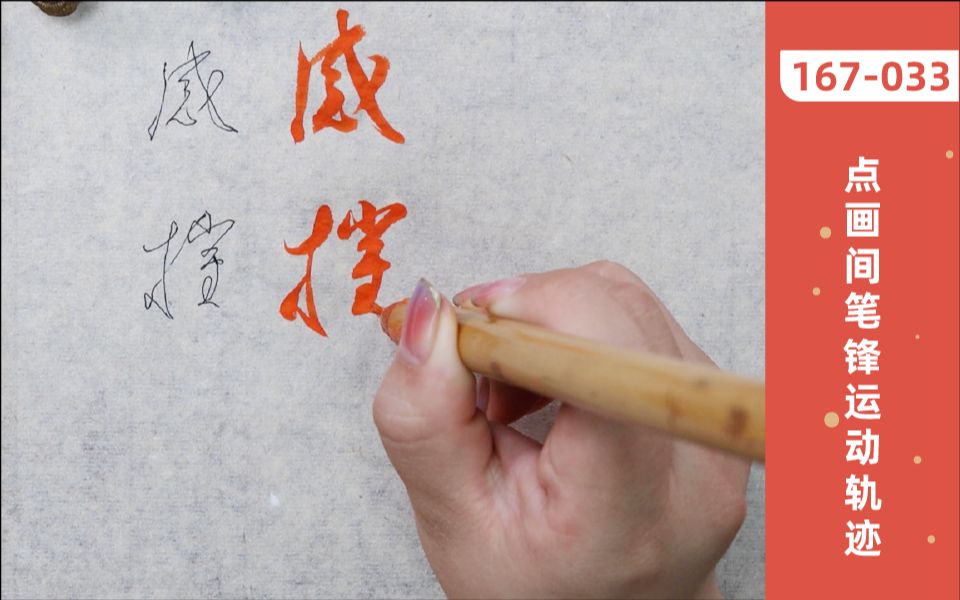 167-033
点画间笔锋运动轨迹
感 感